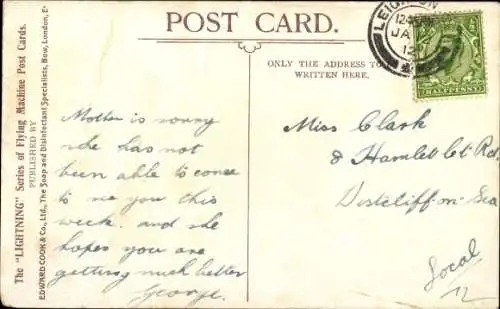 POST CARD.
ONLY THE ADDRESS TO
WRITTEN HERE.
The "LIGHTNING" Series of Flying Machine Post Cards.
PUBLISHED BY
EDWARD COOK & Co., Ltd., The Soap and Disinfectant Specialists, Bow, London, E.
LEIGH ON
JA
12
HALFPENNY
Mother is sorry
she has not
been able to come
to see you this
week. and she
hopes you are
getting much better
George.
Miss Clark
8 Hamlet Ct Rd,
Westcliff-on-Sea
Local